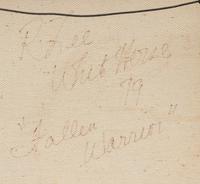 R. Lee
White Horse
79
"Fallen
Warrior"